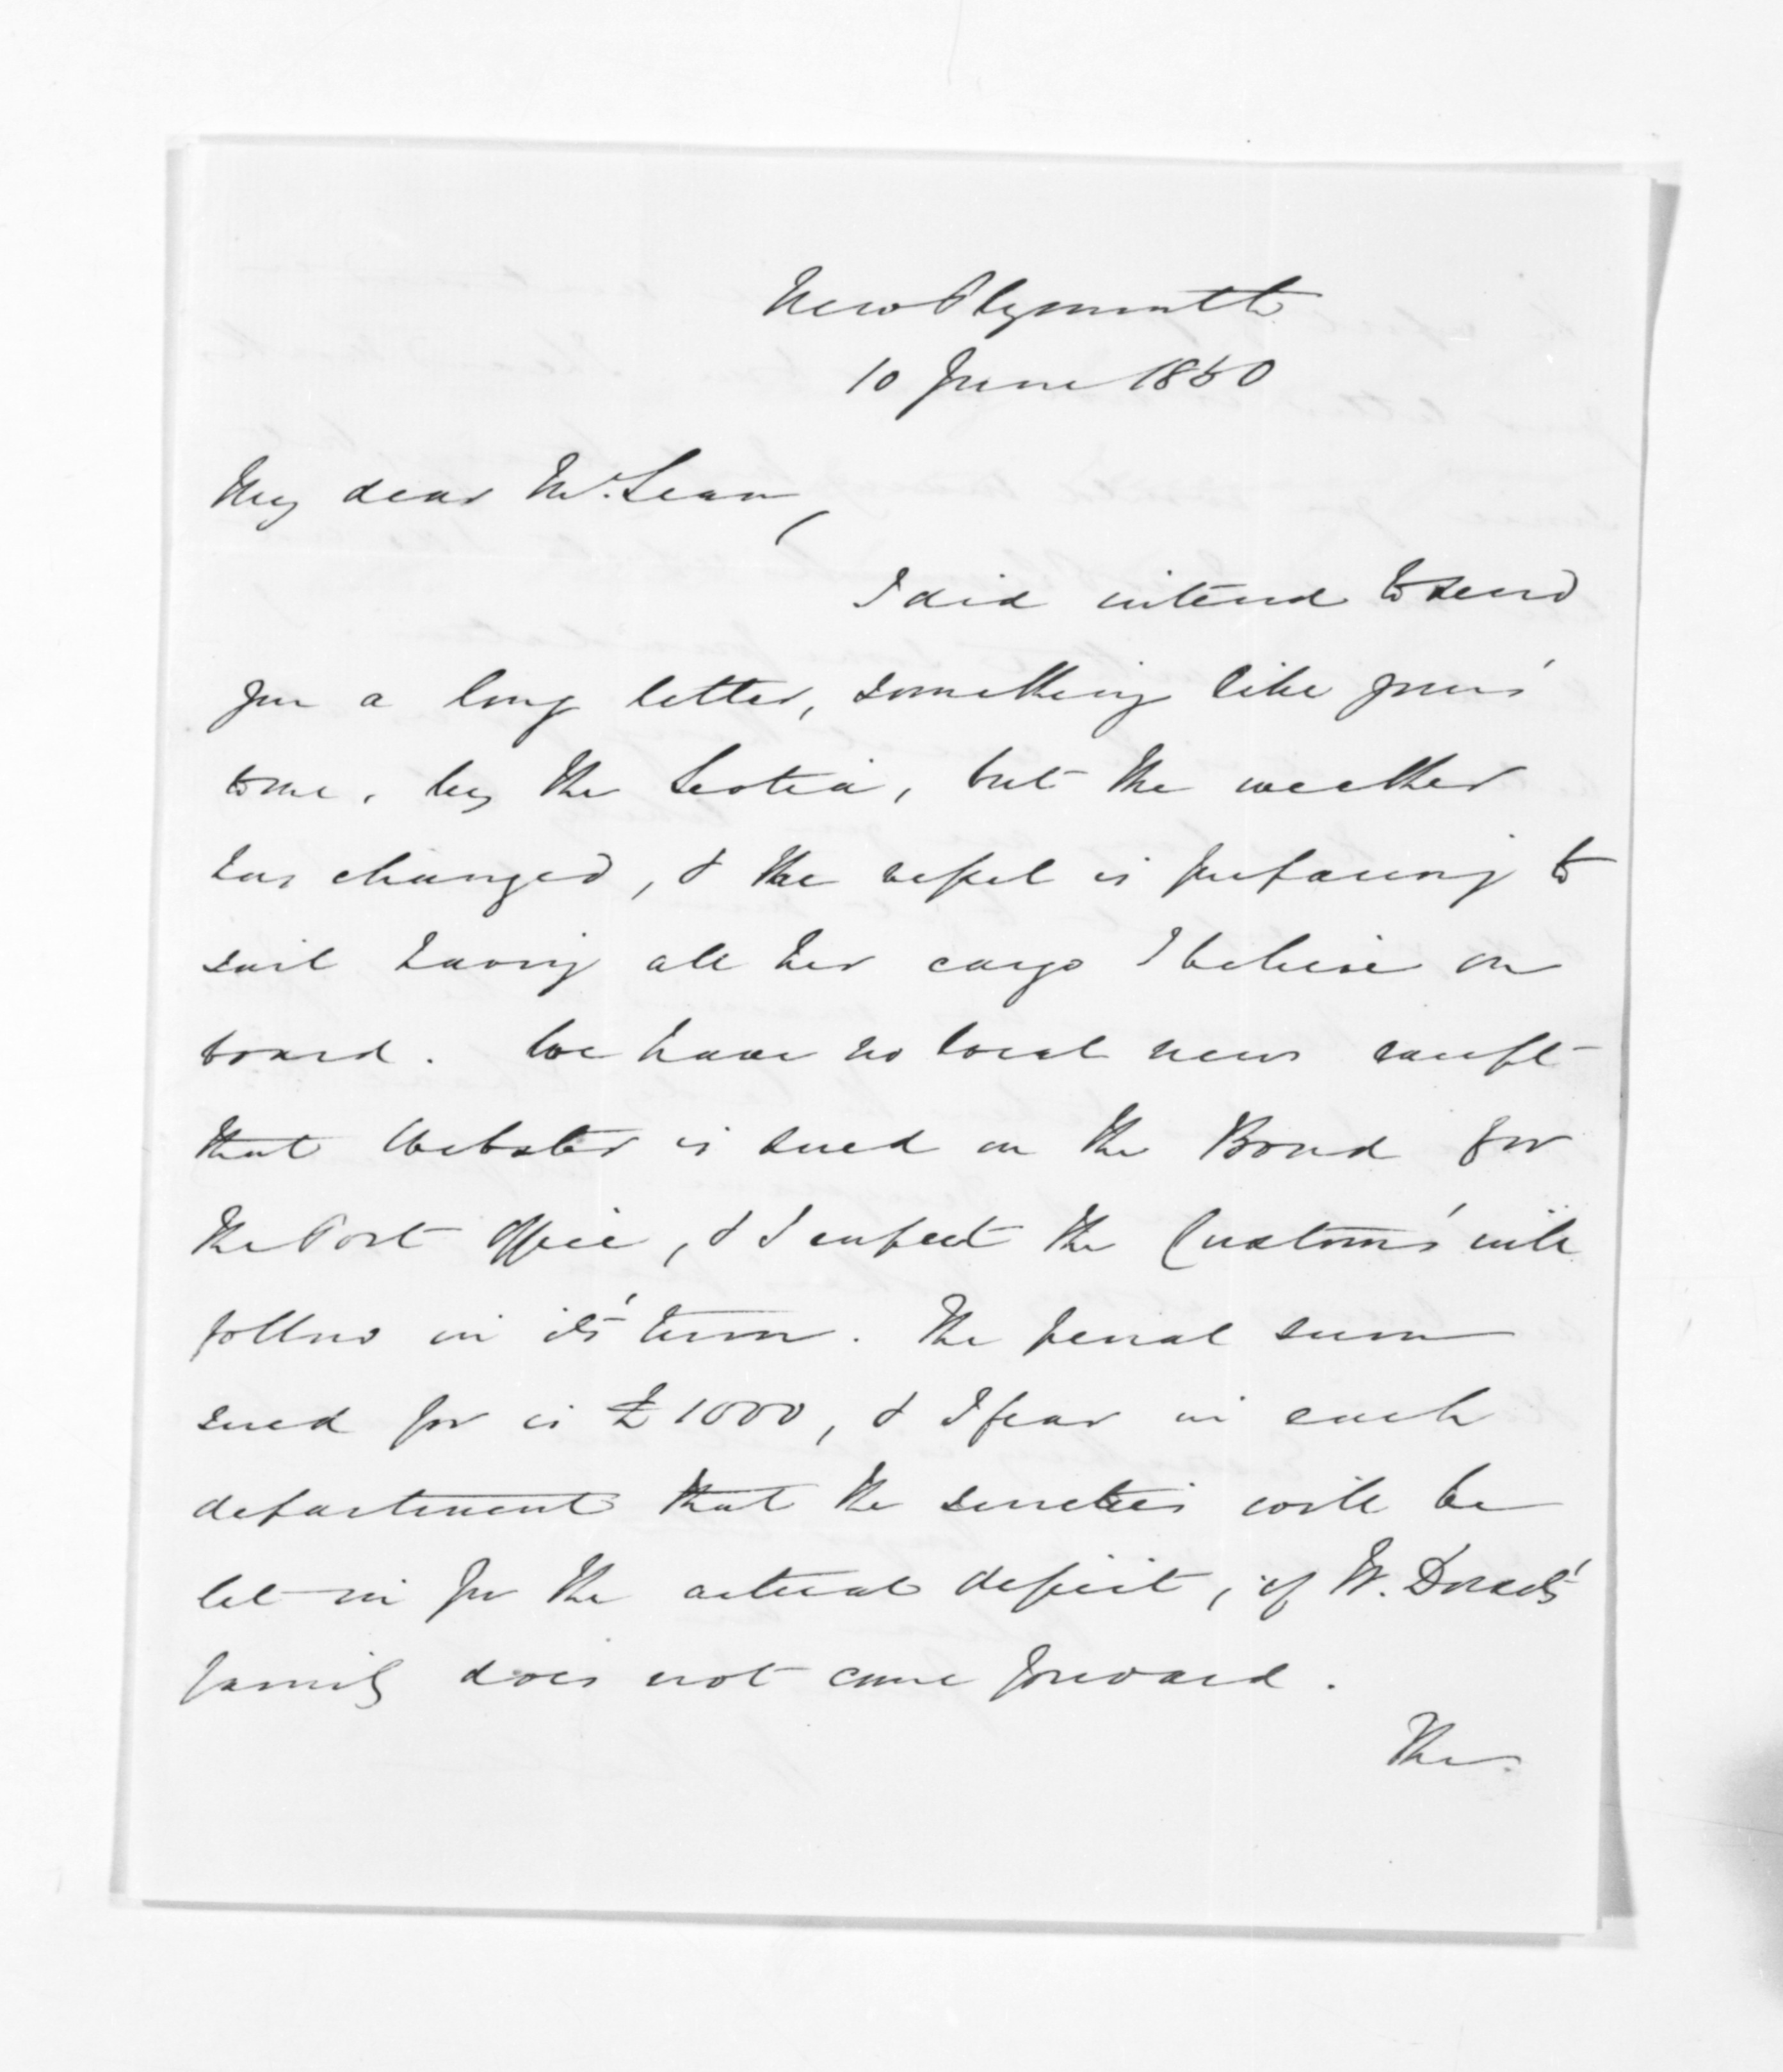 New Plymouth
10 June 1850
My dear McLean,
I did intend to send
you a long letter, something like your's
to me, by the Scotia, but the weather
has changed, & the vessel is preparing to
sail having all her cargo I believe on
board. We have no local news except
that Webster is sued on the Bond for
the Post Office, & I expect the Customs' will
follow in it's turn. The penal sum
sued for is £1000, & I fear in each
department that the sureties will be
let in for the actual deficit, if W. Dorset's
family does not come forward.
The